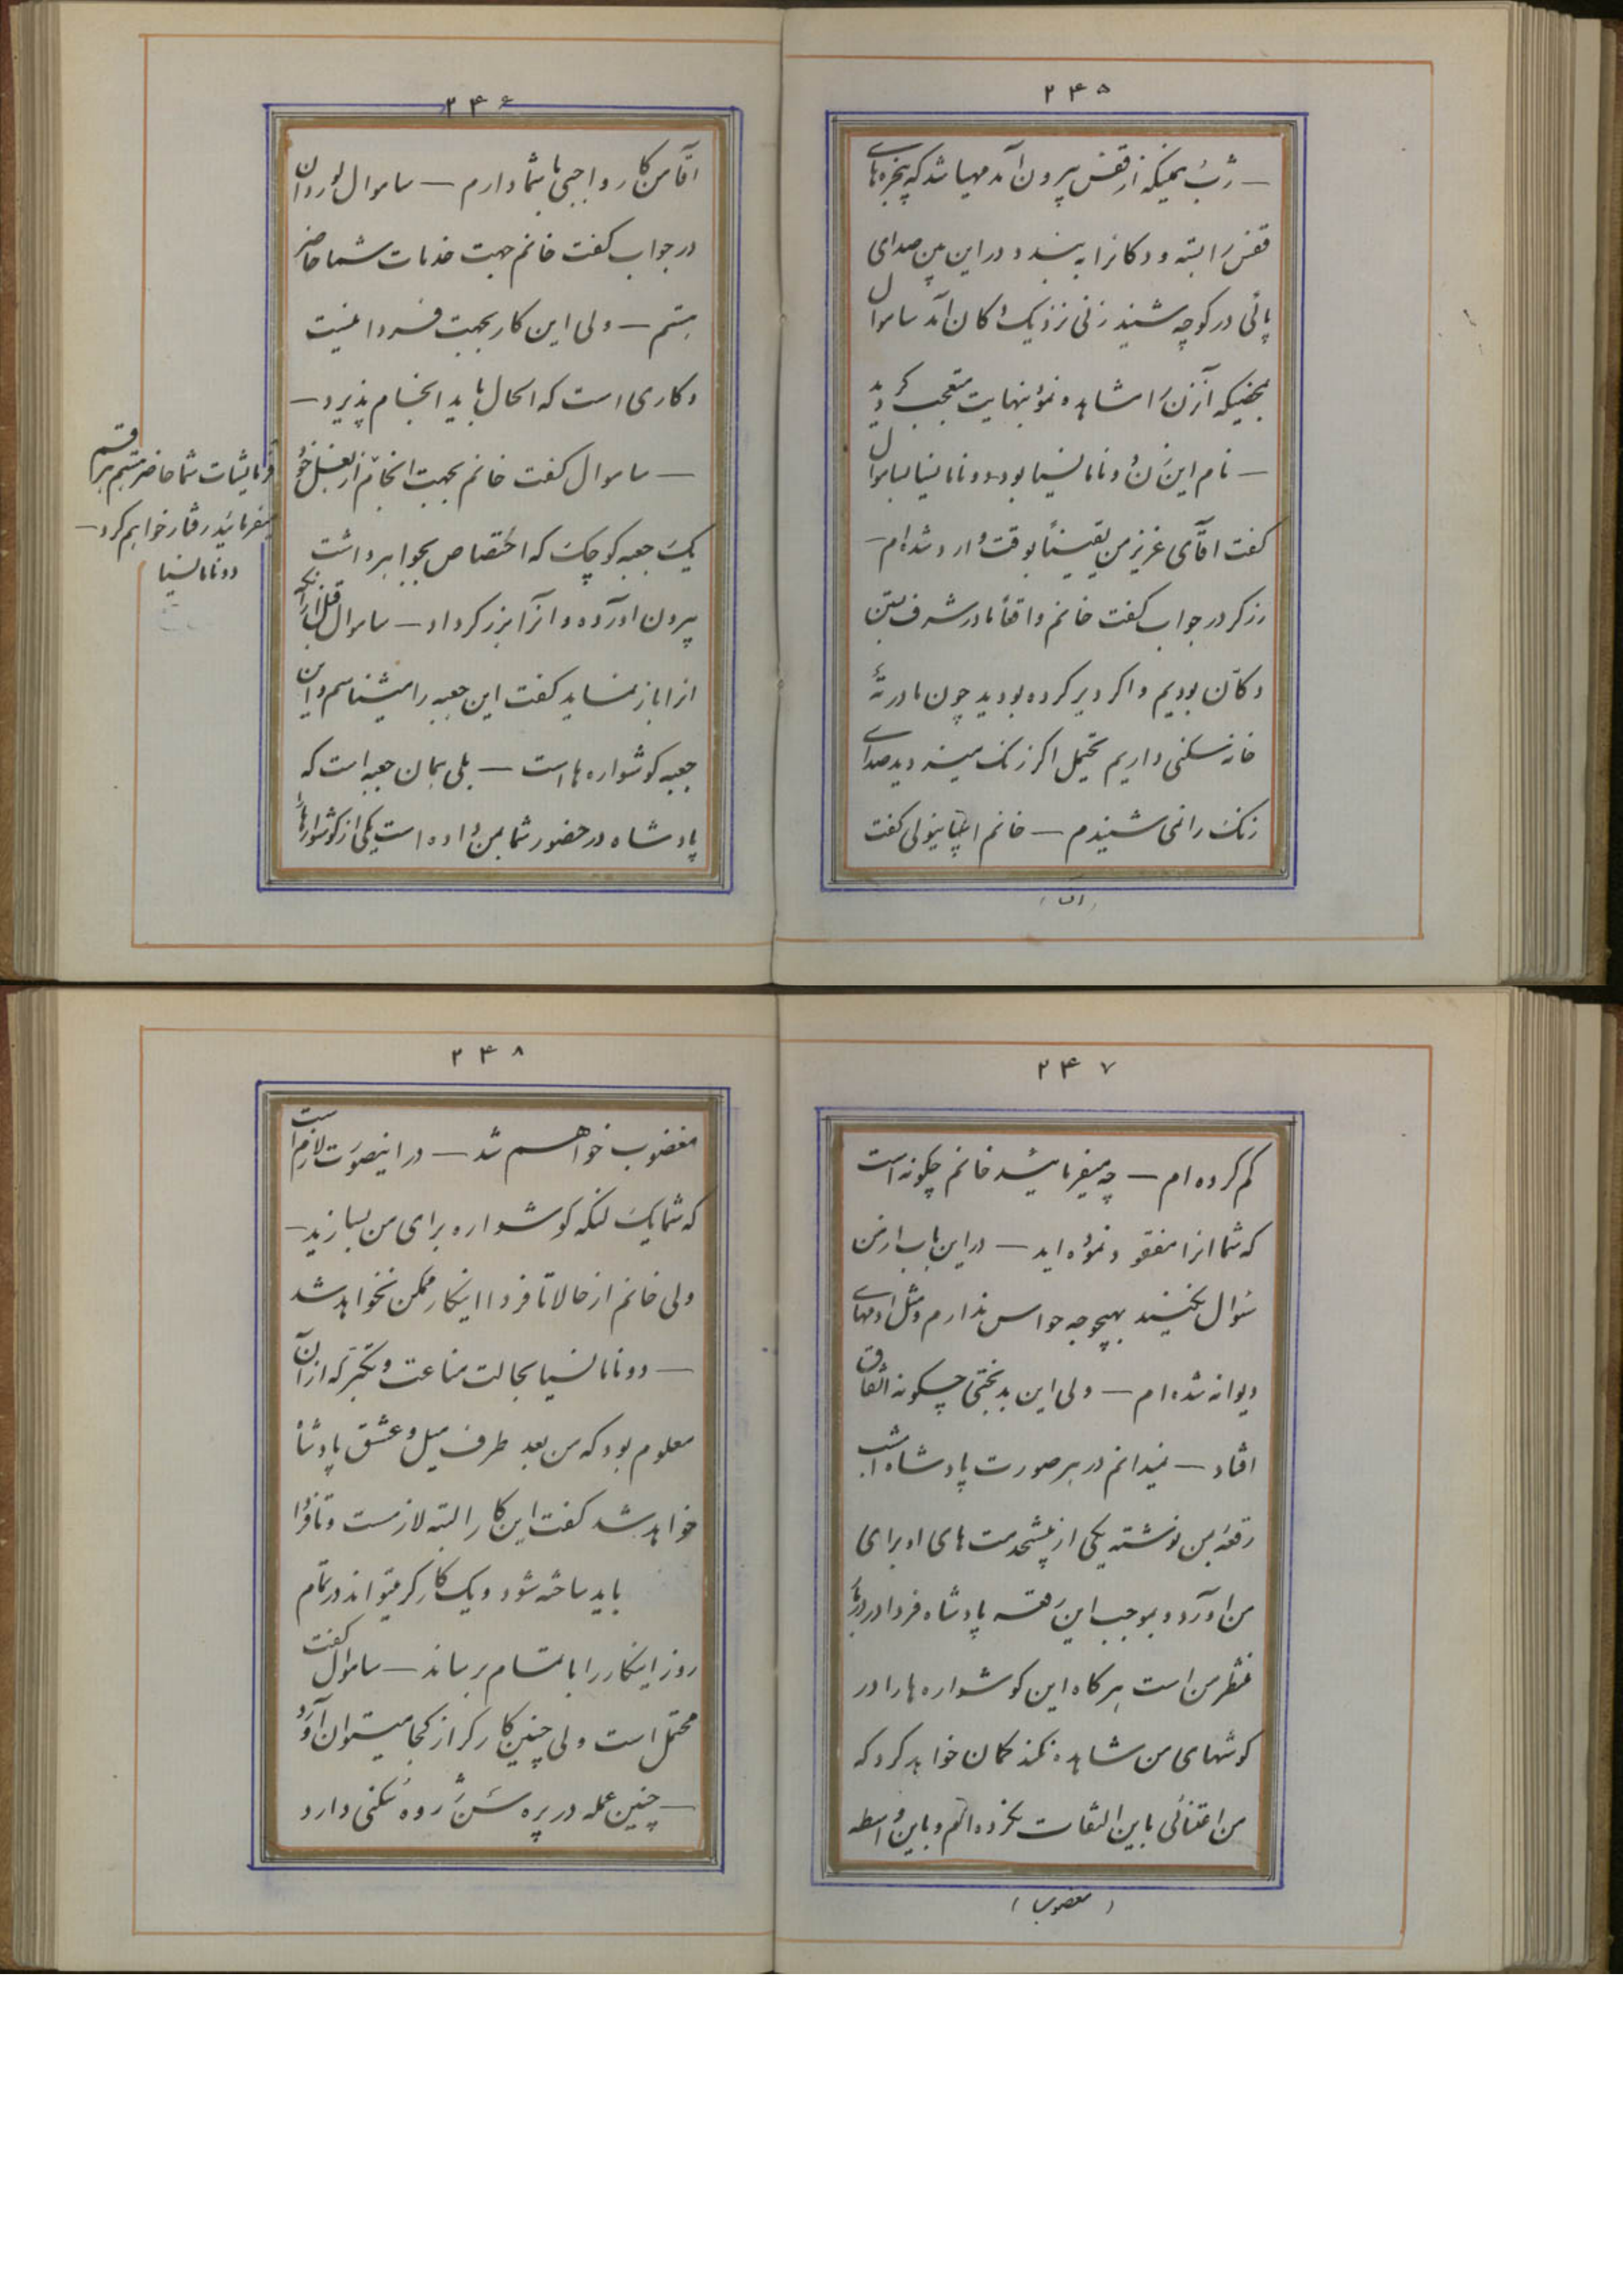 ۲۴۵
— ژب همینکه از قفس بیرون آمد مهیا شد که پنجره‌های
قفس را بسته و دکانرا به بندد و در این بین صدای
پائی در کوچه شنید زنی نزدیک دکان آمد ساموال
بمحضیکه آنزن را مشاهده نمود بنهایت متعجب گردید
— نام این زن دونا مانسیا بود دونا مانسیا بساموال
گفت اقآی عزیز من یقیناً بوقت وارد شده‌ام —
زرگر در جواب گفت خانم واقعاً ما در شرف بستن
دکان بودیم و اگر دیر کرده بودید چون ما در ته
خانه سکنی داریم محتمل اگر زنک میزدید صدای
زنک را نمی شنیدم — خانم اسپانیولی گفت
(اقآ)
۲۴۶
اقآ من کار واجبی با شما دارم — ساموال لوردان
در جواب گفت خانم جهت خدمات شما حاضر
هستم — ولی این کار بجهت فردا نیست
و کاری است که الحال باید انجام پذیرد —
— ساموال گفت خانم بجهت انجام
فرمایشات شما حاضر هستم هر قسم
بفرمائید رفتار خواهم کرد —
دونا مانسیا
از بغل خود
یک جعبه کوچک که اختصاص بجواهر داشت
بیرون اورده و انرا بزرگر داد — ساموال قبل از آنکه
انرا باز نماید گفت این جعبه را میشناسم و این
جعبه کوشواره ها است — بلی همان جعبه است که
پادشاه در حضور شما بمن داده است یکی از کوشوارها را
۲۴۷
کم کرده ام — چه میفرمائید خانم چکونه است
که شما انرا مفقود نموده اید — در این باب از من
سئوال نکنید بهیچوجه حواس ندارم و مثل ادمهای
دیوانه شده ام — ولی این بدبختی چکونه اتفاق
افتاد — نمیدانم در هر صورت پادشاه امشب
رقعه بمن نوشته یکی از پیشخدمت های او برای
من اورد و بموجب این رقعه پادشاه فردا در دربار
منتظر من است هر کاه این کوشواره ها را در
کوشهای من مشاهده نکند کمان خواهد کرد که
من اعتنائی باین التفات نکرده ام و باین واسطه
(مغضوب)
۲۴۸
مغضوب خواهم شد — در اینصورت لازم است
که شما یک لنکه کوشواره برای من بسازید —
ولی خانم از حالا تا فردا اینکار ممکن نخواهد شد
— دونا مانسیا بحالت مناعت و تکبر که از آن
معلوم بود که من بعد طرف میل و عشق پادشاه
خواهد شد گفت این کار البته لازمست و تا فردا
باید ساخته شود و یک کارکر میتواند در تمام
روز اینکار را با تمام برساند — ساموال گفت
محتمل است ولی چنین کارکر از کجا میتوان آورد
— چنین عمله در پره سن ژروه سکنی دارد